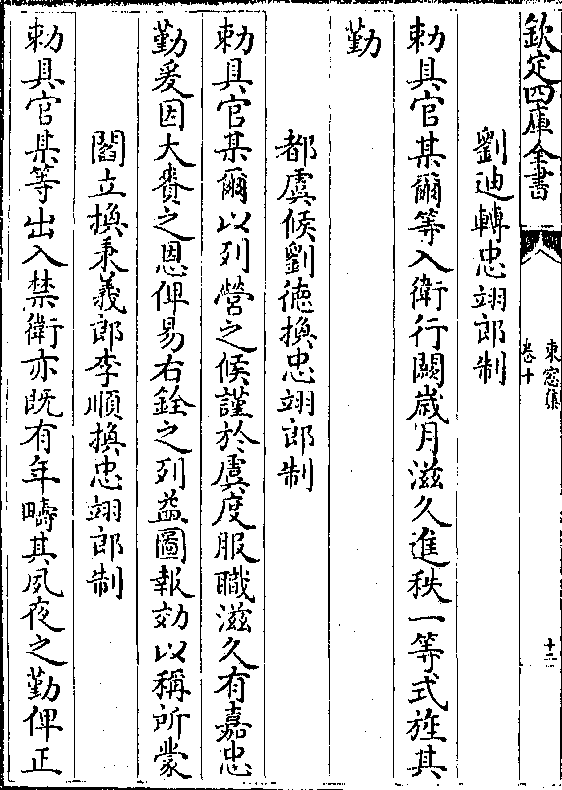 欽定四庫全書
東窓集
卷十
十二
劉迪轉忠翊郎制
勅具官某爾等入衛行闕歲月滋久進秩一等式旌其
勤
都虞候劉德換忠翊郎制
勅具官某爾以列營之候謹於虞度服職滋久有嘉忠
勤爰因大賚之恩俾易右銓之列益圖報効以稱所蒙
閻立換秉義郎李順換忠翊郎制
勅具官某等出入禁衛亦既有年疇其夙夜之勤俾正